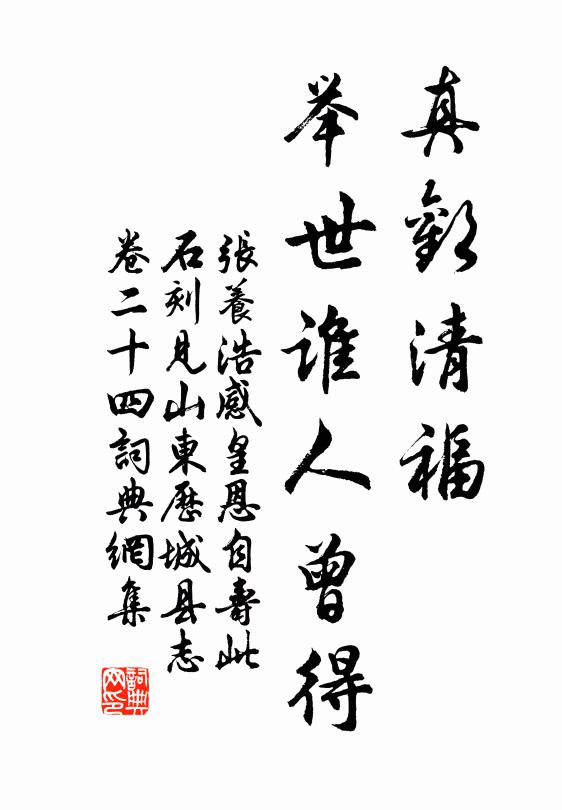 真歡清福
举世谁人曾得
張養浩感皇恩自壽此
石刻見山東歷城县志
卷二十四詞典網集
詞典网印